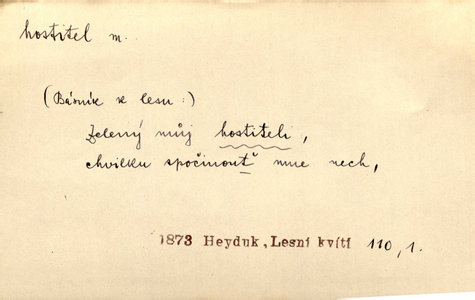 hostitel m.
(Básník k lesu:)
Zelený můj hostiteli,
chvilku spočinouť mne nech,
1873 Heyduk, Lesní kvítí 110, 1.